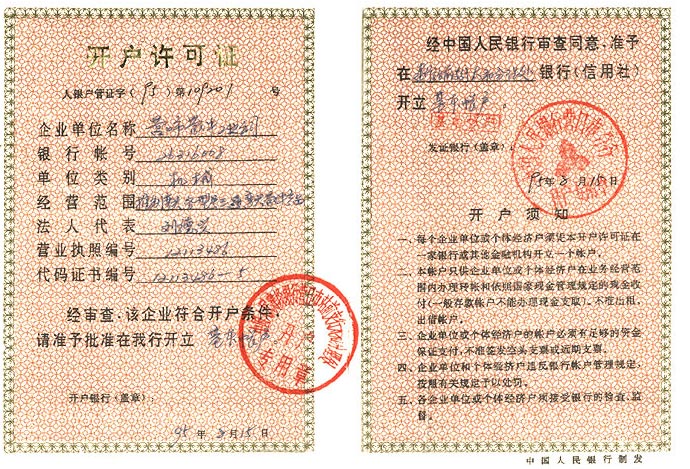 开户许可证
人银户管证字( 95 )第109201 号
企业单位名称
银行帐号 26216008
单位类别
经营范围
法人代表 刘德兴
营业执照编号 12113486
代码证书编号 12113486-5
经审查、该企业符合开户条件,
请准予批准在我行开立 基本帐户
开户
专用章
开户银行(盖章):
95 年 8 月 15 日
经中国人民银行审查同意、准予
在 银行(信用社)
开立 基本帐户 。
基本账户
发证银行(盖章):
95 年 8 月 15 日
开户须知
一、每个企业单位或个体经济户须凭本开户许可证在
一家银行或其他金融机构开立一个帐户。
二、本帐户只供企业单位或个体经济户在业务经营范
围内办理转帐和依照国家现金管理规定的现金收
付(一般存款帐户不能办理现金支取)。不准出租、
出借帐户。
三、企业单位或个体经济户的帐户必须有足够的资金
保证支付,不准签发空头支票或远期支票。
四、企业单位和个体经济户违反银行帐户管理规定,
按照有关规定予以处罚。
五、各企业单位或个体经济户须接受银行的检查、监
督。
中国人民银行制发